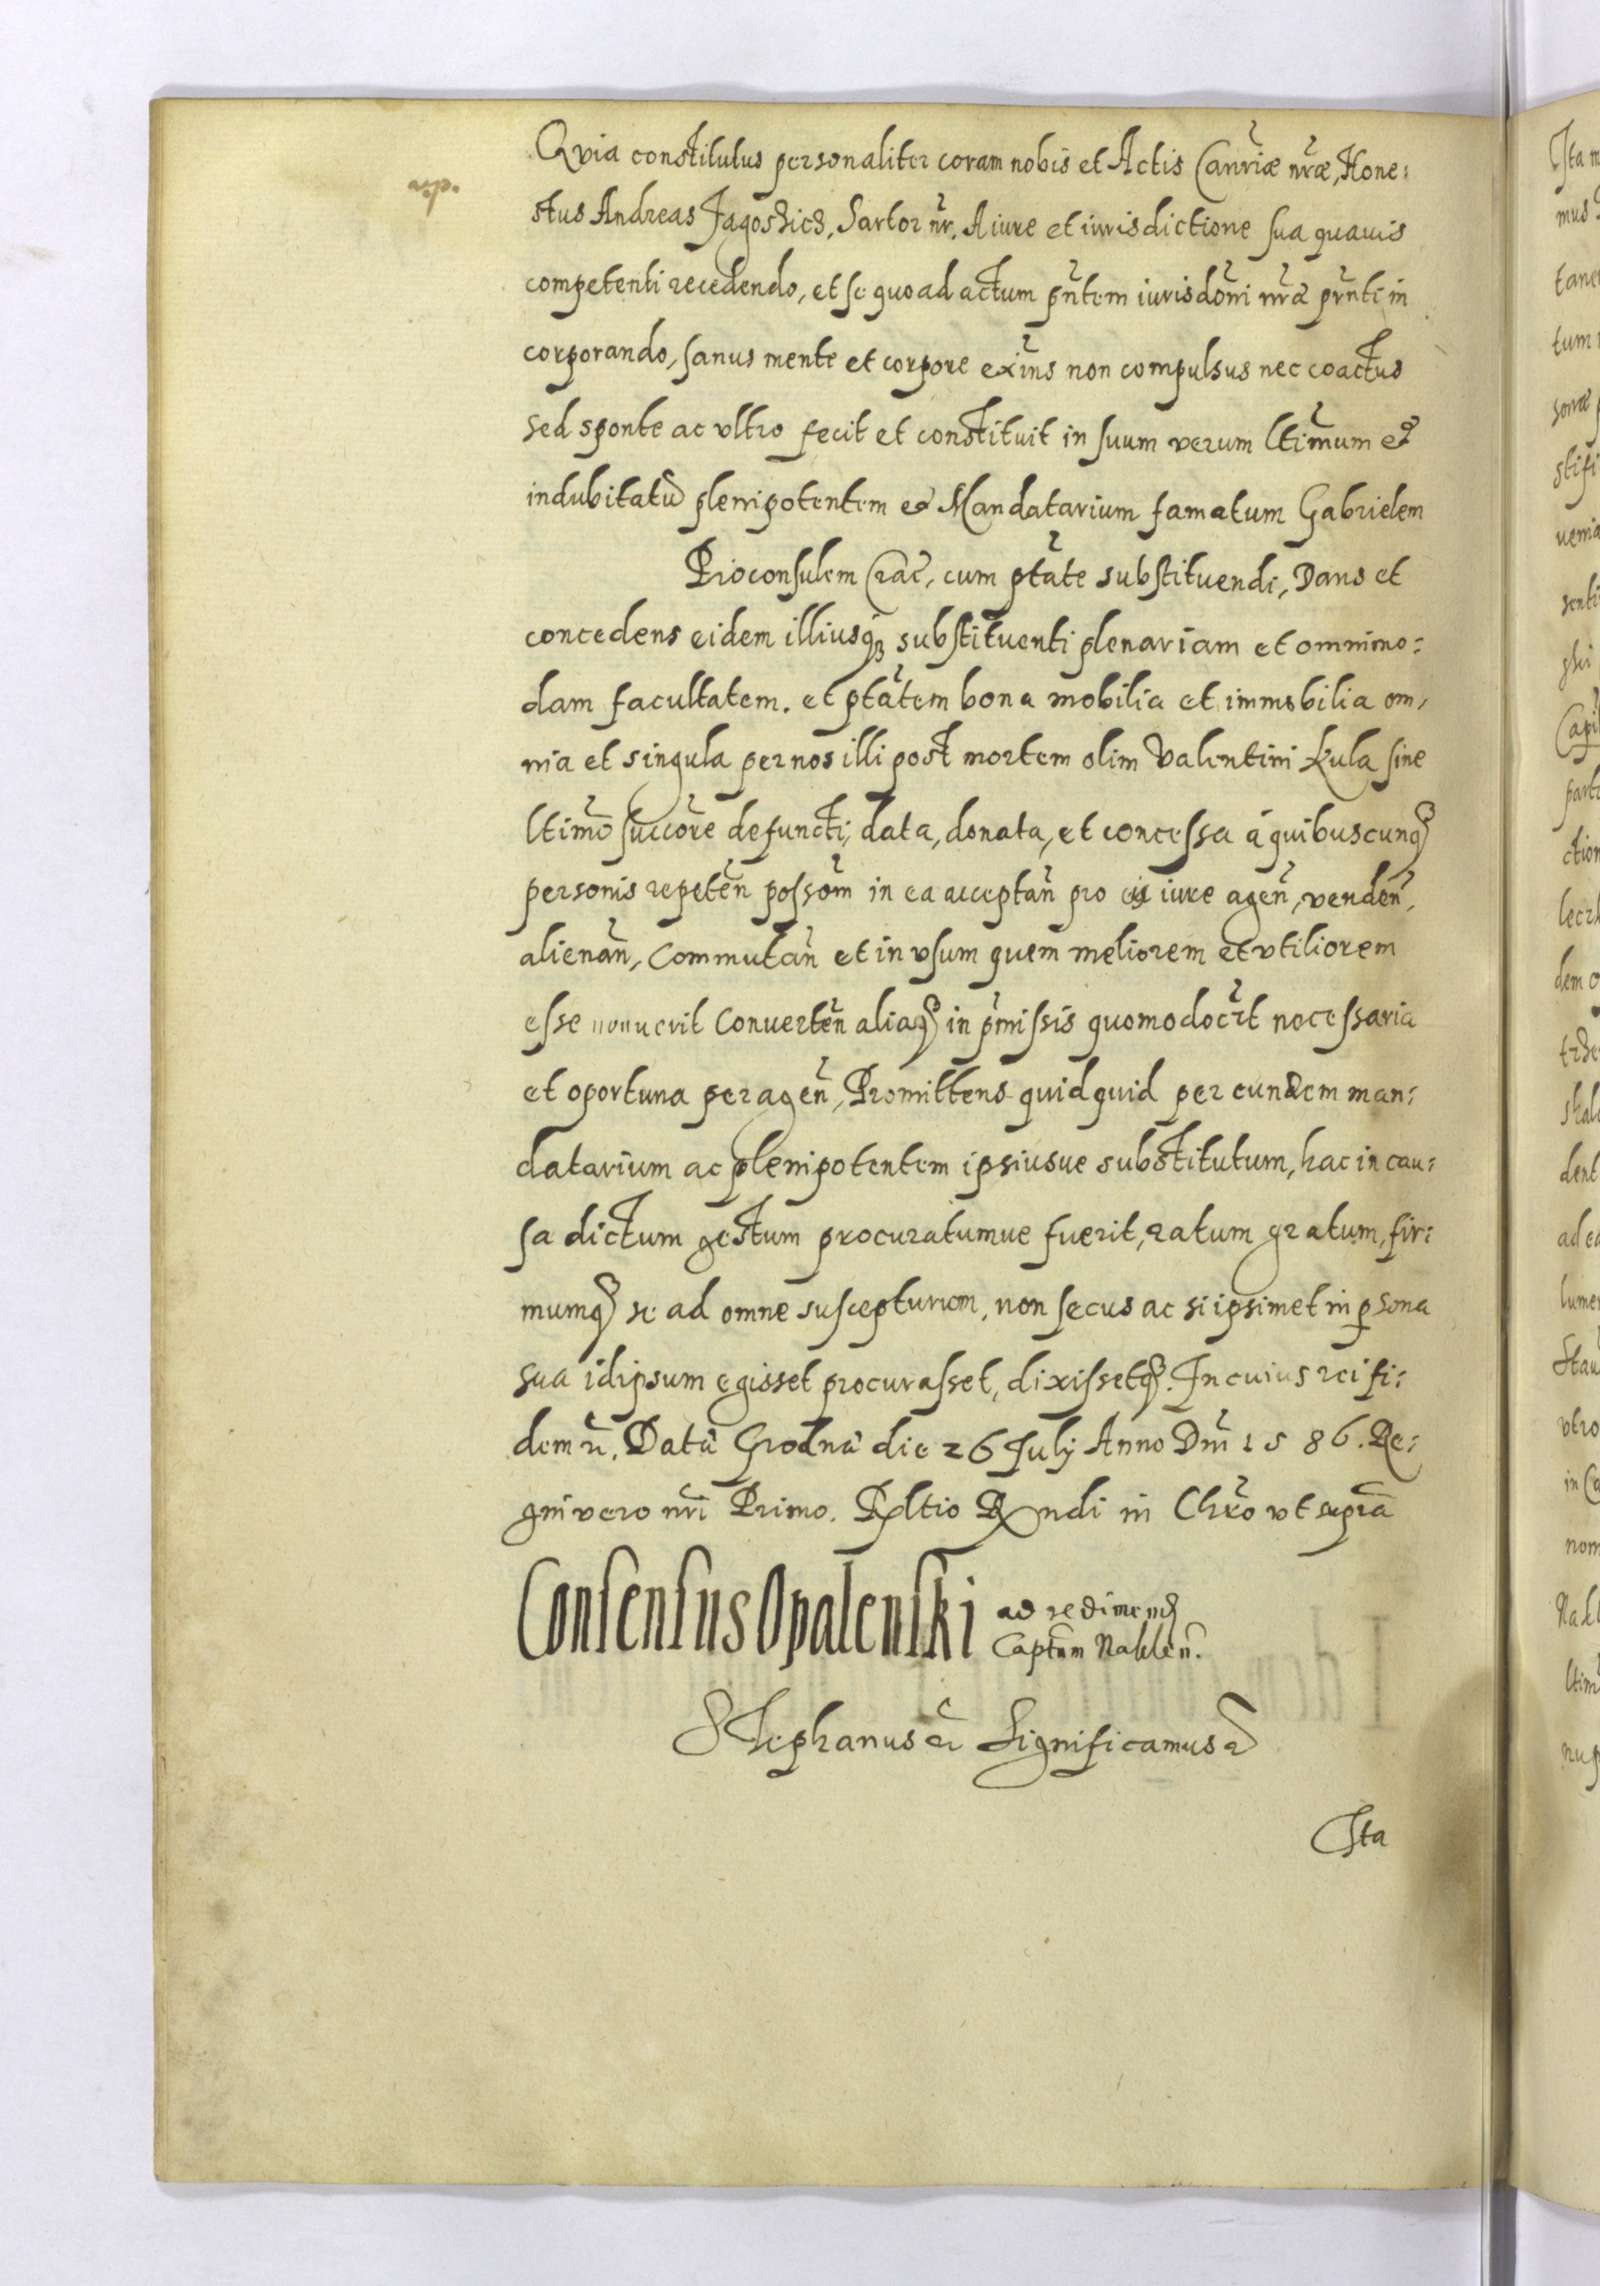 Qvia constitutus personaliter coram nobis et Actis Canriæ nræ, Hone:
stus Andreas Jagoszicz, Sartor nr. A iure et iurisdictione sua quauis
competenti recedendo, et se quoad actum pñtem iurisdõni nræ pñti in
corporando, sanus mente et corpore exĩns non compulsus nec coactus
sed sponte ac vltro fecit et constituit in suum verum ltimum et
indubitatũ plenipotentem et Mandatarium famatum Gabrielem
Proconsulem Crac, cum ptãte substituendi, Dans et
concedens eidem illiusqȝ substituenti plenariam et omnimo:
dam facultatem. et ptãtem bona mobilia et immobilia om,
nia et singula per nos illi post mortem olim Valentini Kula sine
ltimõ succõre defuncti, data, donata, et concessa á quibuscunqȝ
personis repetẽn possõm in ea acceptañ pro eis iure ageñ, vendeñ,
alienañ, Commutañ et in vsum quem meliorem et vtiliorem
esse nouerit Conuerteñ aliaqȝ in p̃missis quomodoc̃t necessaria
et oportuna perageñ, Promittens quidquid per eundem man:
datarium ac plenipotentem ipsiusue substitutum, hac in cau:
sa dictum gestum procuratumue fuerit, ratum gratum, fir:
mumqȝ se ad omne suscepturum, non secus ac si ipsimet in psona
sua idipsum egisset procurasset, dixissetqȝ. In cuius rei fi:
dem Datũ Grodnæ die 26 Julij Anno Dni 1586. Re:
gni vero nri Primo. Rltio Rndi in Chro vt supra
Consensus Opalenski ad redimend
Captum Naklen.
Stephanus Significamus
Ista